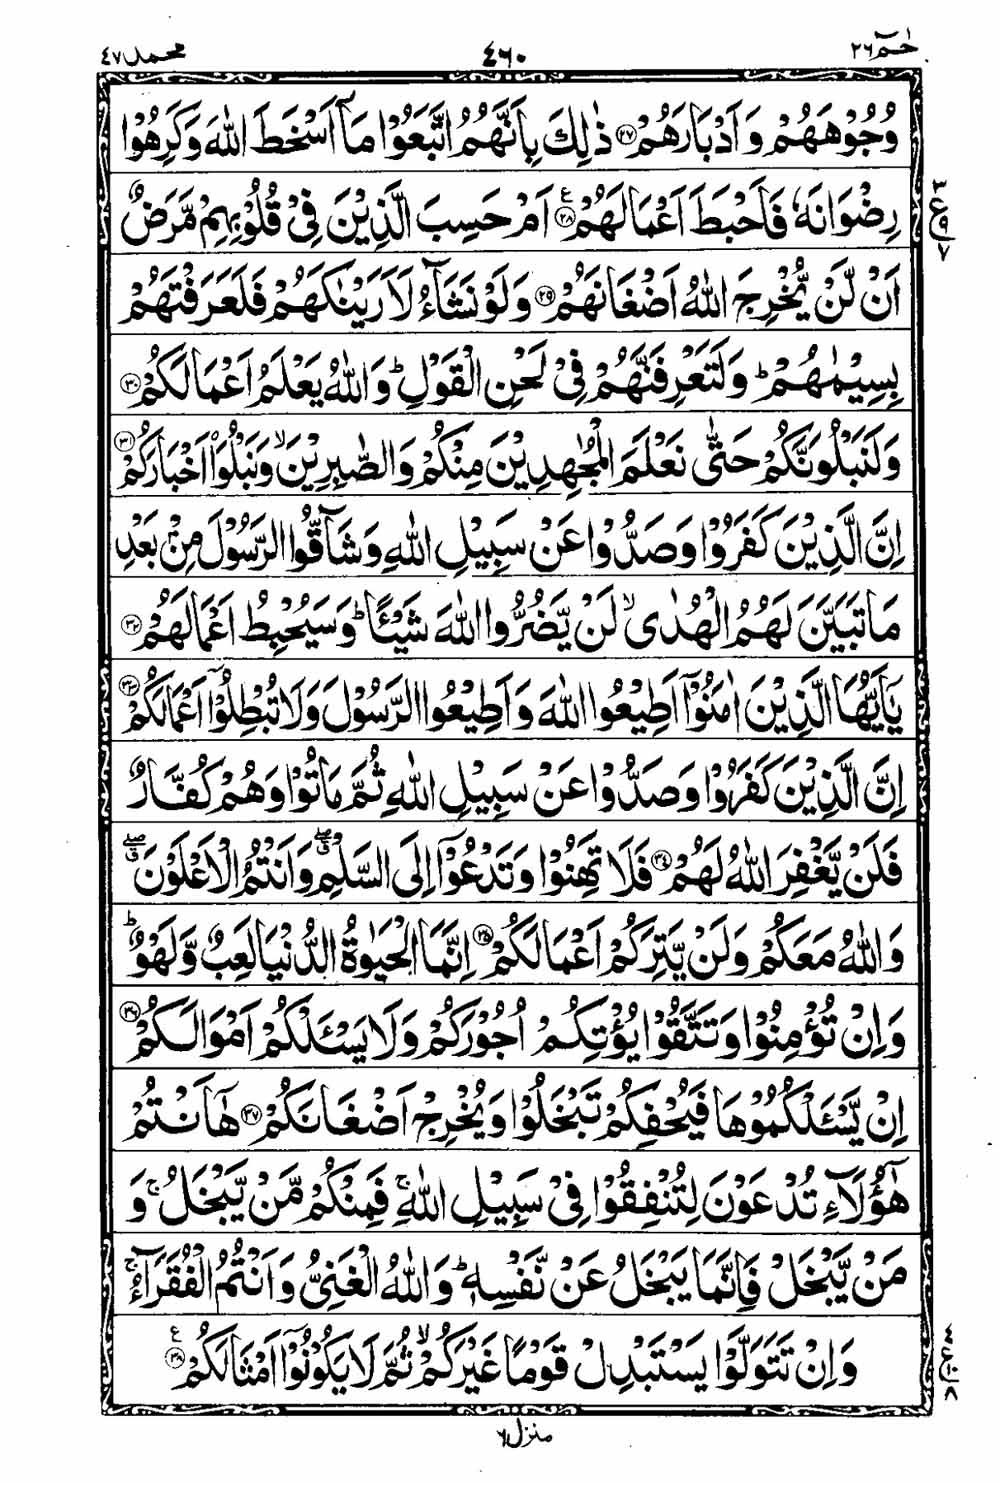 حٰمٓ ٢٦
٤٦٠
محمد ٤٧
وُجُوْهَهُمْ وَاَدْبَارَهُمْ ﴿٢٧﴾ ذٰلِكَ بِاَنَّهُمُ اتَّبَعُوْا مَاۤ اَسْخَطَ اللّٰهَ وَكَرِهُوْا
رِضْوَانَهٗ فَاَحْبَطَ اَعْمَالَهُمْ ﴿٢٨﴾ ع اَمْ حَسِبَ الَّذِيْنَ فِيْ قُلُوْبِهِمْ مَّرَضٌ
اَنْ لَّنْ يُّخْرِجَ اللّٰهُ اَضْغَانَهُمْ ﴿٢٩﴾ وَلَوْ نَشَآءُ لَاَرَيْنٰكَهُمْ فَلَعَرَفْتَهُمْ
بِسِيْمٰهُمْ ؕ وَلَتَعْرِفَنَّهُمْ فِيْ لَحْنِ الْقَوْلِ ؕ وَاللّٰهُ يَعْلَمُ اَعْمَالَكُمْ ﴿٣٠﴾
وَلَنَبْلُوَنَّكُمْ حَتّٰى نَعْلَمَ الْمُجٰهِدِيْنَ مِنْكُمْ وَالصّٰبِرِيْنَ ۙ وَنَبْلُوَا۟ اَخْبَارَكُمْ ﴿٣١﴾
اِنَّ الَّذِيْنَ كَفَرُوْا وَصَدُّوْا عَنْ سَبِيْلِ اللّٰهِ وَشَآقُّوا الرَّسُوْلَ مِنْۢ بَعْدِ
مَا تَبَيَّنَ لَهُمُ الْهُدٰى ۙ لَنْ يَّضُرُّوا اللّٰهَ شَيْـًٔا ؕ وَسَيُحْبِطُ اَعْمَالَهُمْ ﴿٣٢﴾
يٰۤاَيُّهَا الَّذِيْنَ اٰمَنُوْۤا اَطِيْعُوا اللّٰهَ وَاَطِيْعُوا الرَّسُوْلَ وَلَا تُبْطِلُوْۤا اَعْمَالَكُمْ ﴿٣٣﴾
اِنَّ الَّذِيْنَ كَفَرُوْا وَصَدُّوْا عَنْ سَبِيْلِ اللّٰهِ ثُمَّ مَاتُوْا وَهُمْ كُفَّارٌ
فَلَنْ يَّغْفِرَ اللّٰهُ لَهُمْ ﴿٣٤﴾ فَلَا تَهِنُوْا وَتَدْعُوْۤا اِلَى السَّلْمِ ۖق وَاَنْتُمُ الْاَعْلَوْنَ ۖق
وَاللّٰهُ مَعَكُمْ وَلَنْ يَّتِرَكُمْ اَعْمَالَكُمْ ﴿٣٥﴾ اِنَّمَا الْحَيٰوةُ الدُّنْيَا لَعِبٌ وَّلَهْوٌ ؕ
وَاِنْ تُؤْمِنُوْا وَتَتَّقُوْا يُؤْتِكُمْ اُجُوْرَكُمْ وَلَا يَسْـَٔلْكُمْ اَمْوَالَكُمْ ﴿٣٦﴾
اِنْ يَّسْـَٔلْكُمُوْهَا فَيُحْفِكُمْ تَبْخَلُوْا وَيُخْرِجْ اَضْغَانَكُمْ ﴿٣٧﴾ هٰۤاَنْتُمْ
هٰۤؤُلَآءِ تُدْعَوْنَ لِتُنْفِقُوْا فِيْ سَبِيْلِ اللّٰهِ ۚ فَمِنْكُمْ مَّنْ يَّبْخَلُ ۚ وَ
مَنْ يَّبْخَلْ فَاِنَّمَا يَبْخَلُ عَنْ نَّفْسِهٖ ؕ وَاللّٰهُ الْغَنِيُّ وَاَنْتُمُ الْفُقَرَآءُ ۚ
وَاِنْ تَتَوَلَّوْا يَسْتَبْدِلْ قَوْمًا غَيْرَكُمْ ۙ ثُمَّ لَا يَكُوْنُوْۤا اَمْثَالَكُمْ ﴿٣٨﴾ ع
٣
ع ٩
٧
٨
منزل ٦